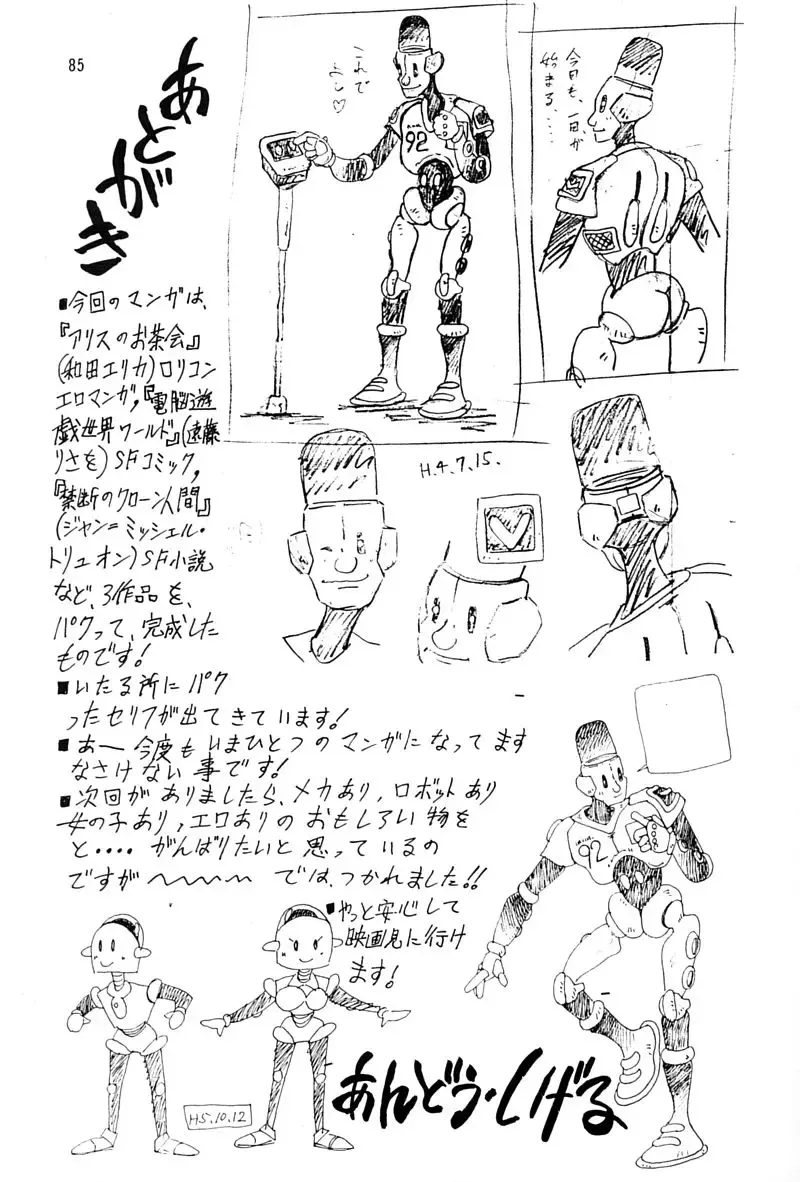 85
あとがき
これで
よし♡
今日も、一日が
始まる、・・・・
92
■今回のマンガは、
『アリスのお茶会』
(和田エリカ)ロリコン
エロマンガ,『電脳遊
戯世界ワールド』(遠藤
りさを)SFコミック,
『禁断のクローン人間』
(ジャン=ミッシェル・
トリュオン)SF小説
など、3作品を、
パクって、完成した
ものです!
■いたる所にパク
ったセリフが出てきています!
■あー今度もいまひとつのマンガになってます
なさけない事です!
■次回がありましたら、メカあり,ロボットあり
女の子あり,エロありのおもしろい物を
と・・・・がんばりたいと思っているの
ですが〜〜〜〜では、つかれました!!
■やっと安心して
映画見に行け
ます!
H.4.7.15.
92
H5.10.12
あんどう・しげる